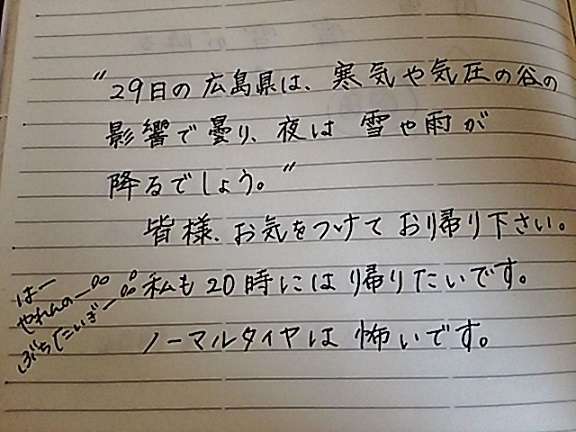 "29日の広島県は、寒気や気圧の谷の
影響で曇り、夜は雪や雨が
降るでしょう。"
皆様、お気をつけてお帰り下さい。
私も20時には帰りたいです。
ノーマルタイヤは怖いです。
はー
やれんのー
ぶちたいぎー